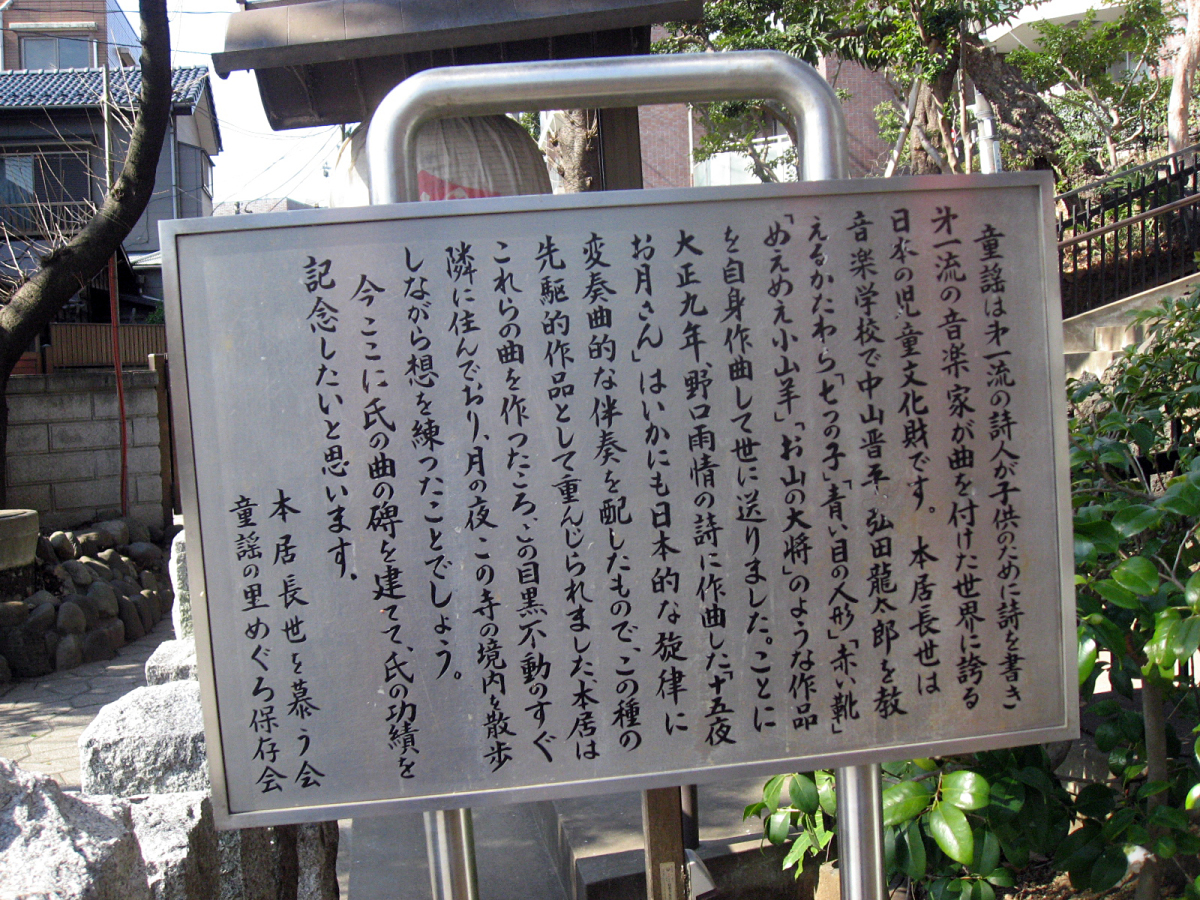 童謡は第一流の詩人が子供のために詩を書き
第一流の音楽家が曲を付けた世界に誇る
日本の児童文化財です。 本居長世は
音楽学校で中山晋平 弘田龍太郎を教
えるかたわら「七つの子」「青い目の人形」「赤い靴」
「めえめえ小山羊」「お山の大将」のような作品
を自身作曲して世に送りました。ことに
大正九年、野口雨情の詩に作曲した「十五夜
お月さん」はいかにも日本的な旋律に
変奏曲的な伴奏を配したもので、この種の
先駆的作品として重んじられました、本居は
これらの曲を作ったころ、この目黒不動のすぐ
隣に住んでおり、月の夜この寺の境内を散歩
しながら想を練ったことでしょう。
今ここに氏の曲の碑を建てて、氏の功績を
記念したいと思います.
本居長世を慕う会
童謡の里めぐろ保存会